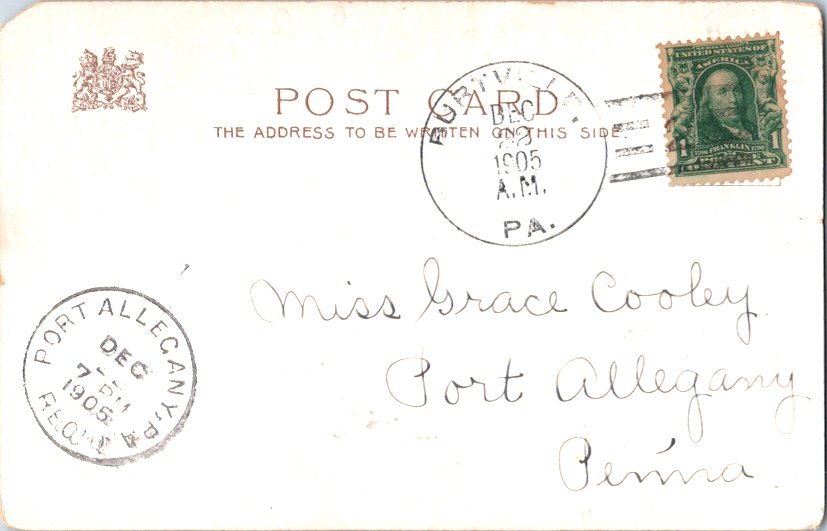 POST CARD
THE ADDRESS TO BE WRITTEN ON THIS SIDE.
BURTVILLE,
DEC
1905
A.M.
PA.
SERIES 1902
UNITED STATES OF
AMERICA
1706 FRANKLIN 1790
1 1
ONE CENT
Miss Grace Cooley
Port Allegany
Penna.
PORT ALLEGANY, PA.
DEC
7 PM
1905
REC'D.